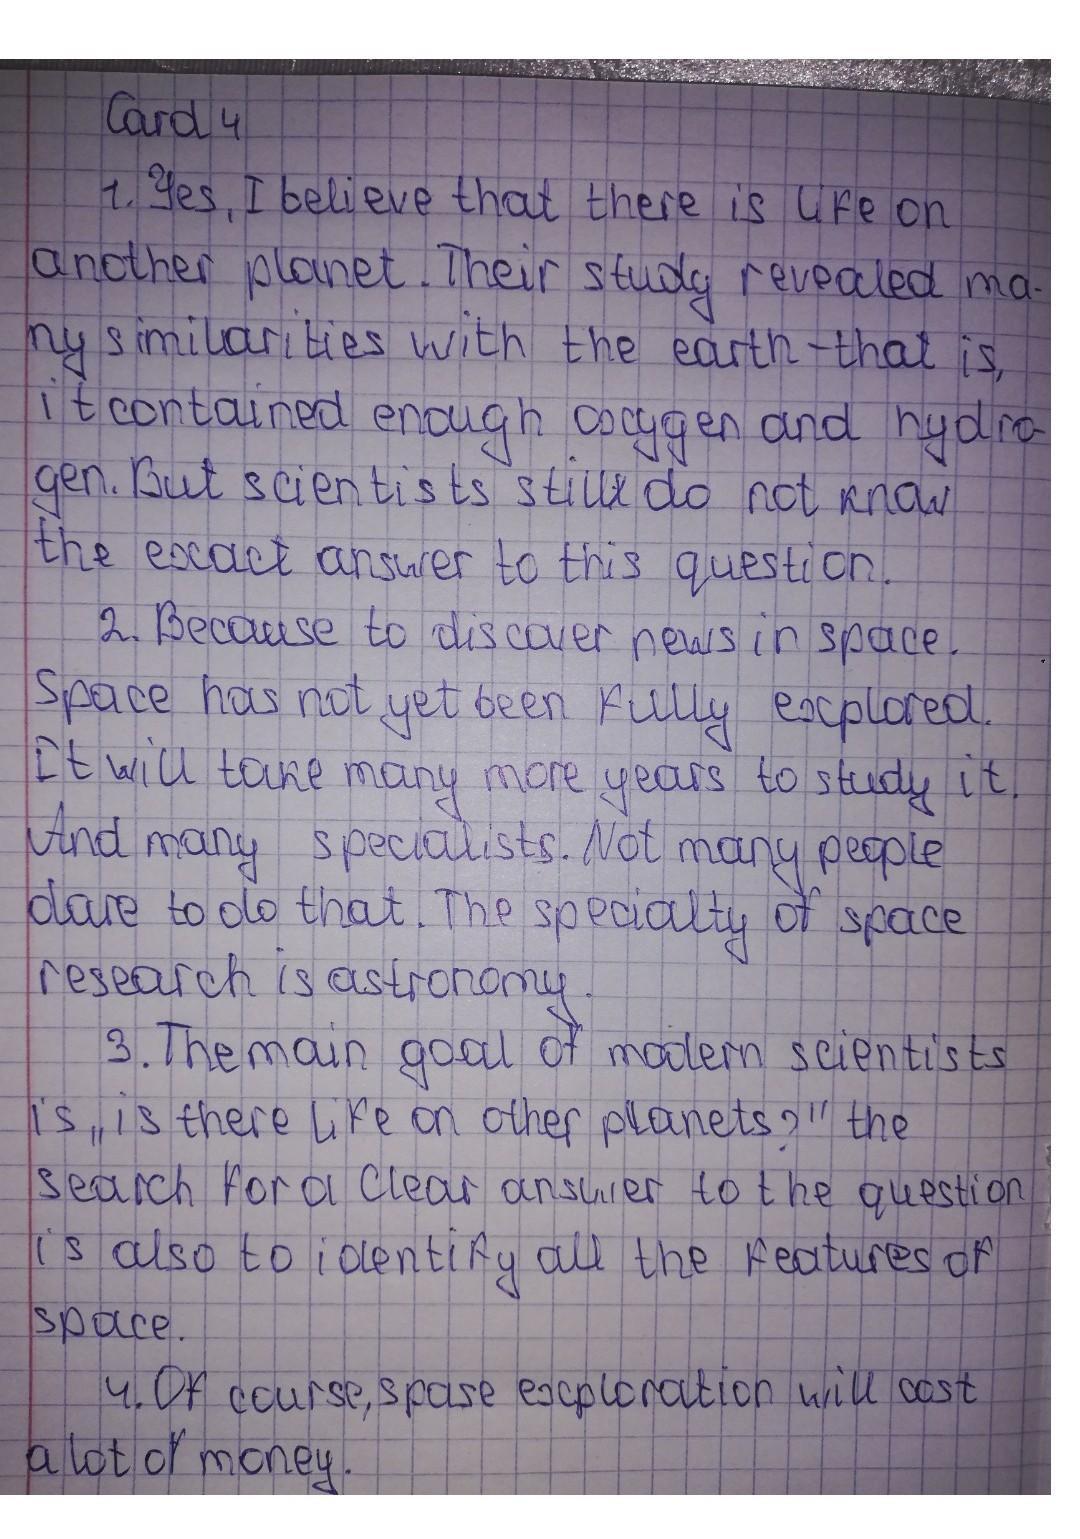 Card 4
1. Yes, I believe that there is life on
another planet. Their study revealed ma-
ny similarities with the earth-that is,
it contained enough oxygen and hydro-
gen. But scientists still do not know
the exact answer to this question.
2. Because to discover news in space.
Space has not yet been fully explored.
It will take many more years to study it.
And many specialists. Not many people
dare to do that. The specialty of space
research is astronomy.
3. The main goal of modern scientists
is „is there life on other planets?" the
search for a clear answer to the question
is also to identify all the features of
space.
4. Of course, spase exploration will cost
a lot of money.